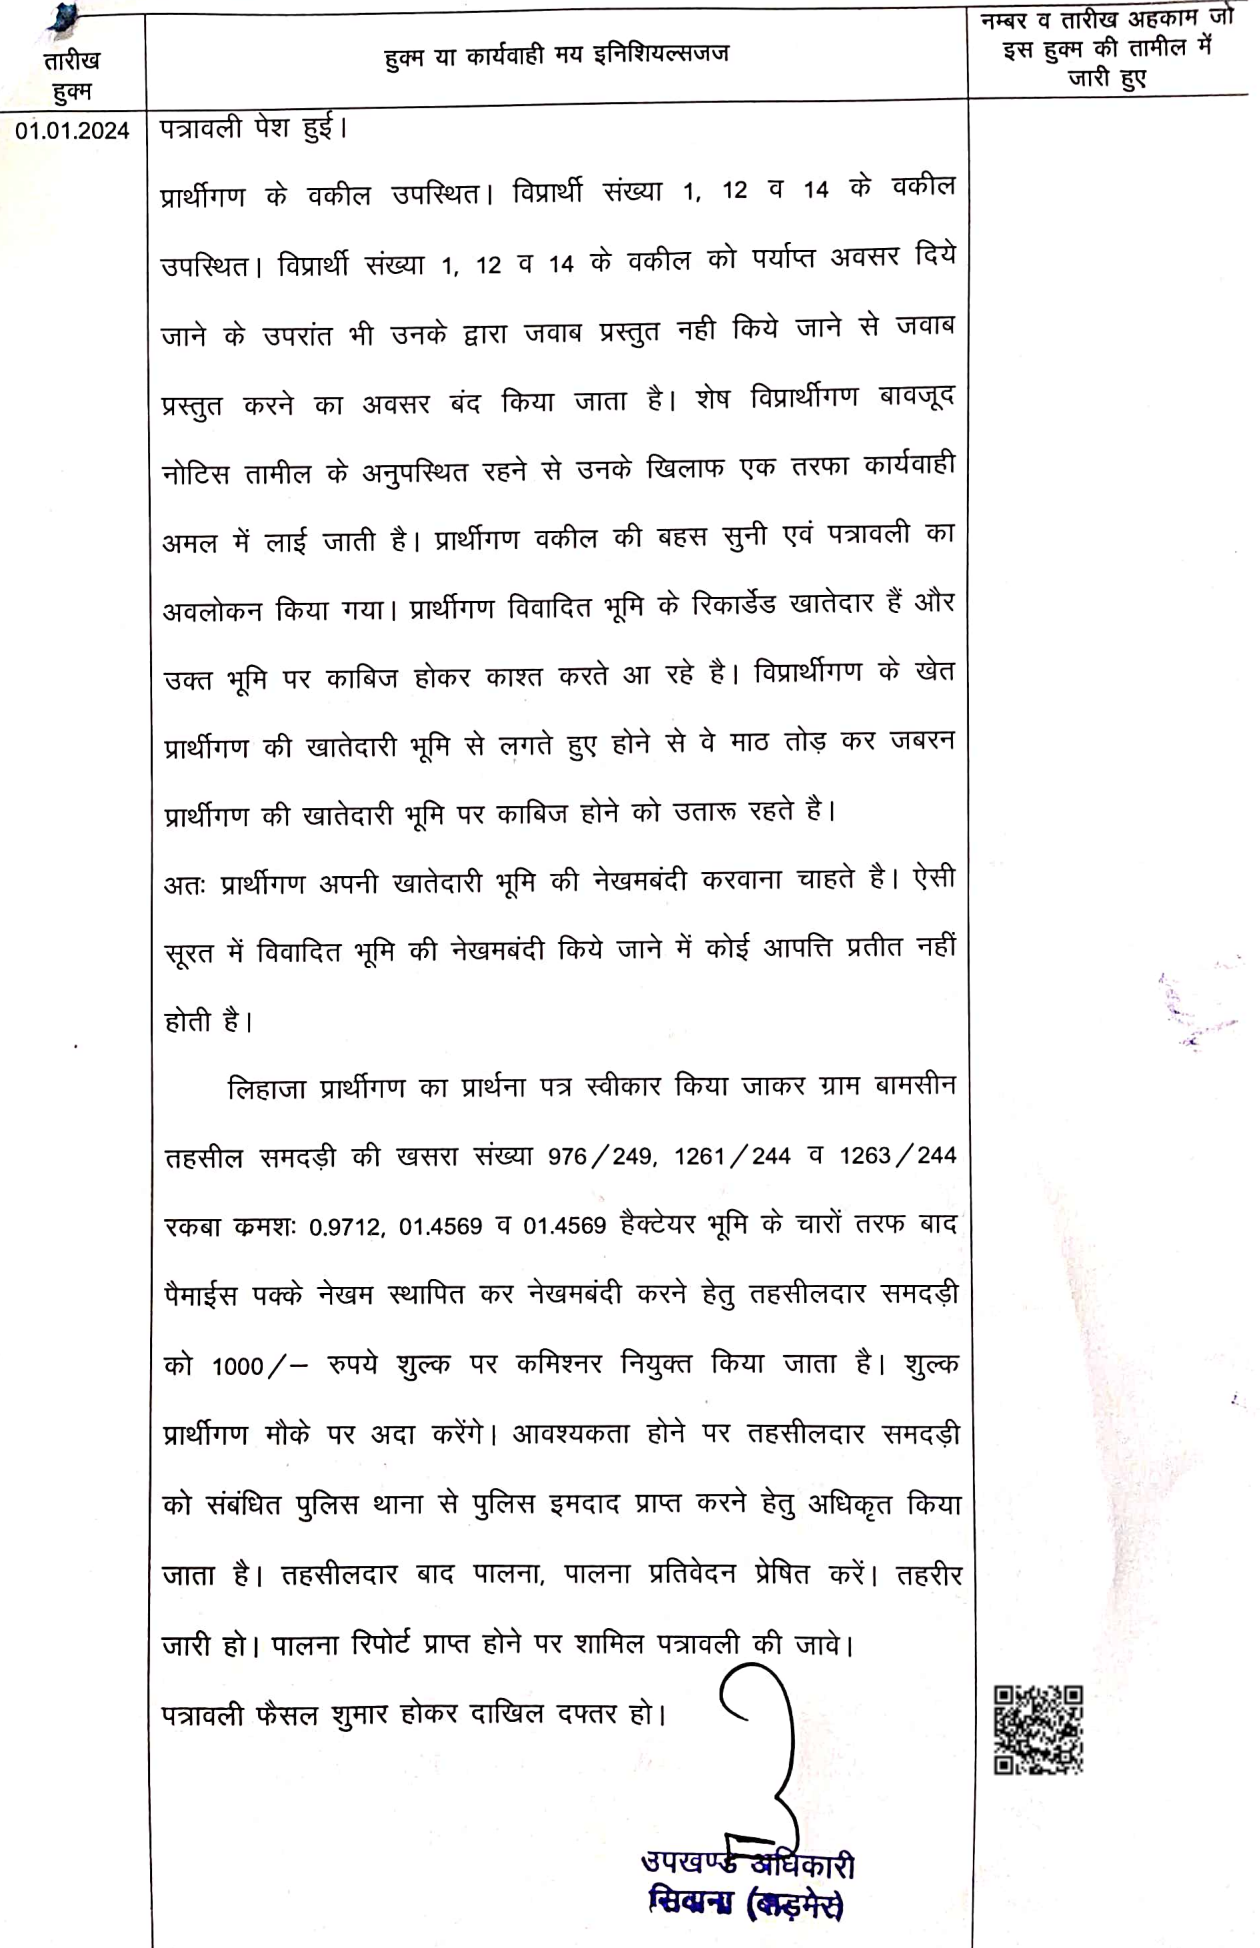 तारीख
हुक्म
हुक्म या कार्यवाही मय इनिशियल्सजज
नम्बर व तारीख अहकाम जो
इस हुक्म की तामील में
जारी हुए
01.01.2024
पत्रावली पेश हुई।
प्रार्थीगण के वकील उपस्थित। विप्रार्थी संख्या 1, 12 व 14 के वकील
उपस्थित। विप्रार्थी संख्या 1, 12 व 14 के वकील को पर्याप्त अवसर दिये
जाने के उपरांत भी उनके द्वारा जवाब प्रस्तुत नही किये जाने से जवाब
प्रस्तुत करने का अवसर बंद किया जाता है। शेष विप्रार्थीगण बावजूद
नोटिस तामील के अनुपस्थित रहने से उनके खिलाफ एक तरफा कार्यवाही
अमल में लाई जाती है। प्रार्थीगण वकील की बहस सुनी एवं पत्रावली का
अवलोकन किया गया। प्रार्थीगण विवादित भूमि के रिकार्डेड खातेदार हैं और
उक्त भूमि पर काबिज होकर काश्त करते आ रहे है। विप्रार्थीगण के खेत
प्रार्थीगण की खातेदारी भूमि से लगते हुए होने से वे माठ तोड़ कर जबरन
प्रार्थीगण की खातेदारी भूमि पर काबिज होने को उतारू रहते है।
अतः प्रार्थीगण अपनी खातेदारी भूमि की नेखमबंदी करवाना चाहते है। ऐसी
सूरत में विवादित भूमि की नेखमबंदी किये जाने में कोई आपत्ति प्रतीत नहीं
होती है।
लिहाजा प्रार्थीगण का प्रार्थना पत्र स्वीकार किया जाकर ग्राम बामसीन
तहसील समदड़ी की खसरा संख्या 976/249, 1261/244 व 1263/244
रकबा क्रमशः 0.9712, 01.4569 व 01.4569 हैक्टेयर भूमि के चारों तरफ बाद
पैमाईस पक्के नेखम स्थापित कर नेखमबंदी करने हेतु तहसीलदार समदड़ी
को 1000/– रुपये शुल्क पर कमिश्नर नियुक्त किया जाता है। शुल्क
प्रार्थीगण मौके पर अदा करेंगे। आवश्यकता होने पर तहसीलदार समदड़ी
को संबंधित पुलिस थाना से पुलिस इमदाद प्राप्त करने हेतु अधिकृत किया
जाता है। तहसीलदार बाद पालना, पालना प्रतिवेदन प्रेषित करें। तहरीर
जारी हो। पालना रिपोर्ट प्राप्त होने पर शामिल पत्रावली की जावे।
पत्रावली फैसल शुमार होकर दाखिल दफ्तर हो।
उपखण्ड अधिकारी
सिवाना (बाड़मेर)